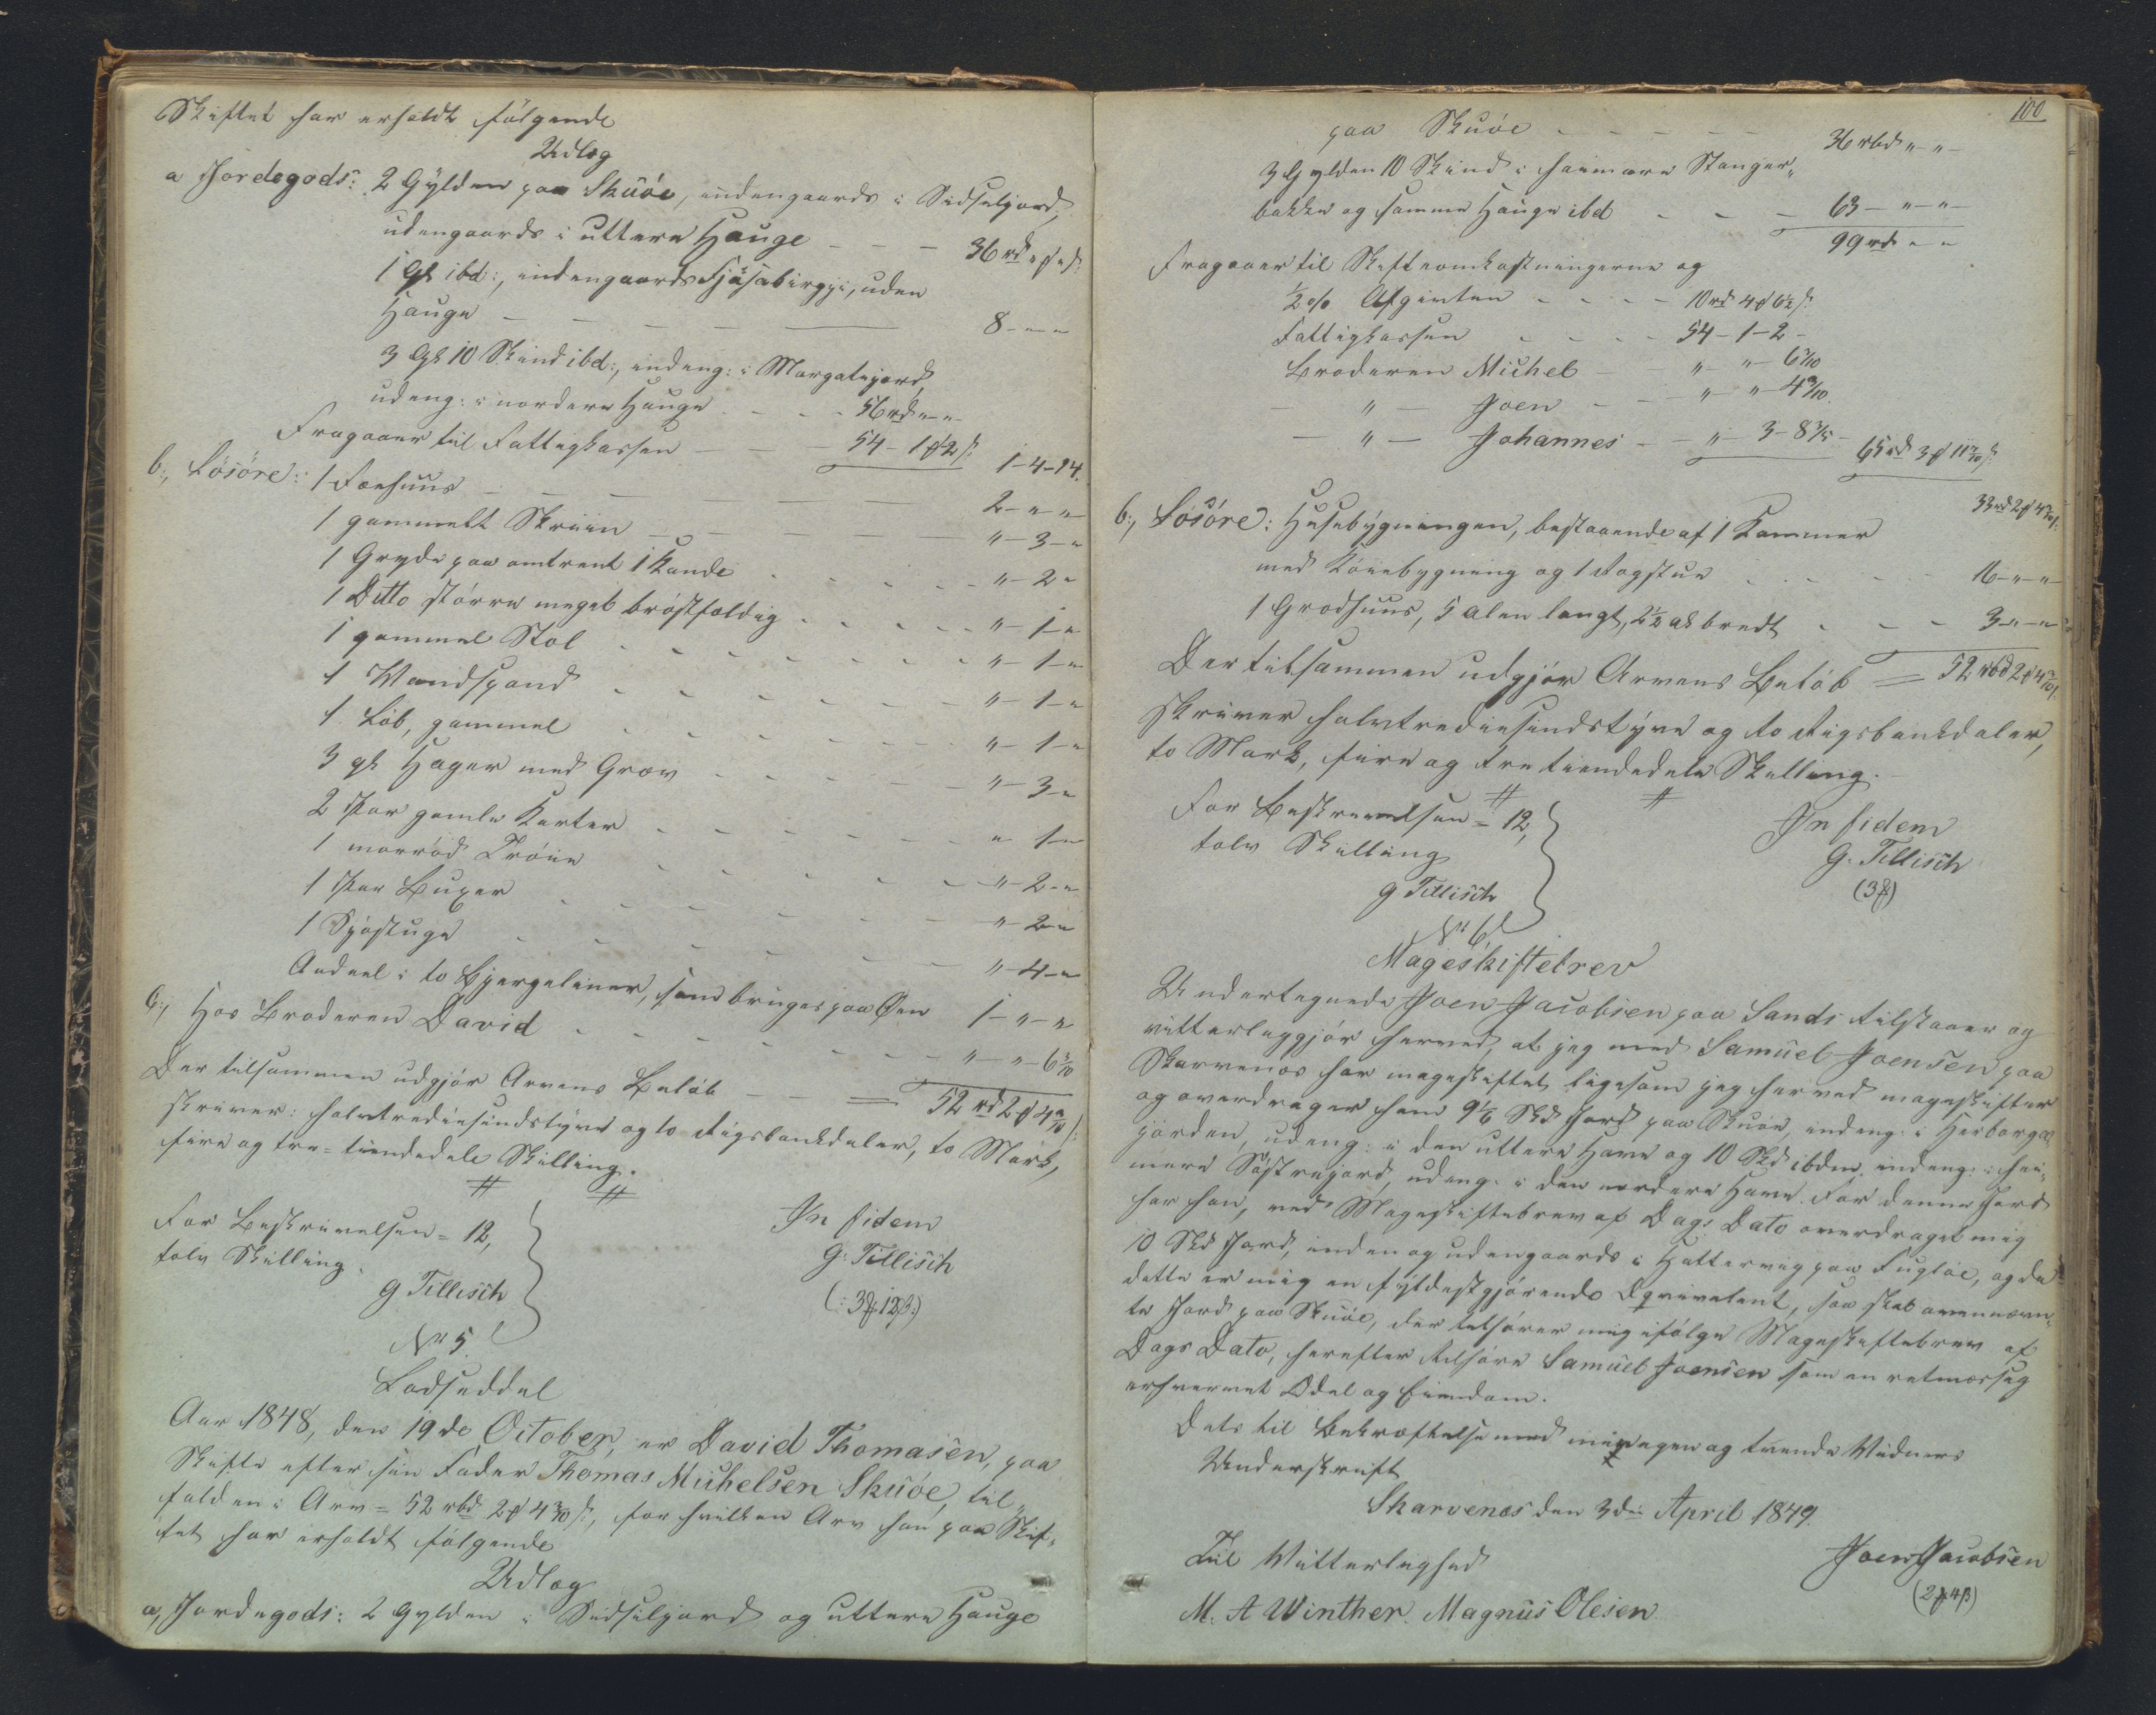 Skiftet har erholdt følgende
Udlæg
a Jordegods: 2 Gylden paa Skuøe, indengaards i Sidseljord,
udengaards i uttere Hauge - - - 36 rd " ꝑ " s:
1 Gl ibd:, indengaards Fjøsabirgji, uden
Hauge - - - - 8 - " - "
3 Gl 10 Skind ibd:, indeng: i Margatejord,
udeng: i nordere Hauge - - - 56 rd " - "
Fragaaer til Fattigkassen - - - 54 - 1 ꝑ 2 s: 1 - 4 - 14.
b., Løsöre: 1 Faehuus - - - - 2 - " - "
1 gammelt Skriin - - - - " - 3 - "
1 Gryde paa omtrent 1 Kande - - - - " - 2 "
1 Ditto större meget bröstfældig - - - - " - 1 - "
1 gammel Stol - - - - " - 1 - "
1 Vandspand - - - - " - 1 - "
1 Løb, gammel - - - - " - 1 - "
3 gl Hager med Grev - - - - " - 3 - "
2 Par gamle Karter - - - - " 1 - "
1 morröd Tröie - - - - " - 2 - "
1 Par Buxer - - - - " - 2 - "
1 Sjöstuge - - - - " - 4 - "
Andeel i to Bjergeliner, som bruges paa Øen 1 - " - "
c., Hos Broderen David - - - - " - " - 6 3/10
Der tilsammen udgjör Arvens Belöb - - = 52 rd 2 ꝑ 4 3/10 s:
skriver: halvtrediesindstyve og to Rigsbankdaler, to Mark,
fire og tre-tiendedele Skilling.
For Beskrivelsen = 12,
tolv Skilling.
G Tillisch
In fidem
G. Tillisch
(: 3 ꝑ 12 ß :)
No 5.
Lodseddel
Aar 1848, den 19de October, er David Thomasen, paa
Skifte efter sin Fader Thomas Michelsen Skuöe, til,,
falden i Arv = 52 rbd 2 ꝑ 4 3/10 s:, for hvilken Arv han paa Skif,,
tet har erholdt følgende
Udlæg
a, Jordegods: 2 Gylden i Sidseljord og uttere Hauge
100
paa Skuöe - - - - 36 rbd " - " -
3 Gylden 10 Skind i heimare Stanger,,
bakke og samme Hauge ibd - - - 63 - " - " -
99 rd " - "
Fragaaer til Skifteomkostningerne og
1/2 % Afgiften - - - - 10 rd 4 ꝑ 6 1/2 s:
Fattigkassen - - - - 54 - 1 - 2 -
Broderen Michel - - " - " - 6 3/10
- " - Joen - - " - " - 4 3/10.
- " - Johannes - - " - 3 - 8 3/5 - 65 rd 3 ꝑ 11 7/10 s:
33 rd 2 ꝑ 4 3/10 s:
b., Løsöre: Husebygningen, bestaaende af 1 Kammer
med Köiebygning og 1 Rogstue - - - - 16 - " - "
1 Grodhuus, 5 Alen langt, 2 1/2 al bredt - - - 3 - " - "
Der tilsammen udgjör Arvens Belöb = 52 rbd 2 ꝑ 4 3/10 s:
skriver halvtrediesindstyve og to Rigsbankdaler,
to Mark, fire og tre tiendedele Skilling.
For Beskrivelsen = 12,
tolv Skilling
G Tillisch
In fidem
G. Tillisch
(3 ꝑ)
No 6
Mageskiftebrev
Undertegnede Joen Jacobsen paa Sands tilstaaer og
vitterliggjör herved, at jeg med Samuel Joensen paa
Skarvenæs har mageskiftet ligesom jeg herved mageskifter
og overdrager ham 9 1/6 Skd Jord paa Skuöe, indeng: i Herborga
jorden, udeng: i den uttere Have og 10 Skd ibdm indeng: i hei,,
mere Söstrejord, udeng: i den nordere Have. For denne Jord
har han, ved Mageskiftebrev af Dags Dato overdraget mig
10 Skd Jord, inden og udengaards i Hattervig paa Fuglöe, og da
dette er mig en fyldestgjörende Eqvivalent, saa skal ovennævn,,
te Jord paa Skuöe, der tilhörer mig ifølge Mageskiftebrev af
Dags Dato, herefter tilhöre Samuel Joensen som en retmæssig
erhvervet Odel og Eiendom.
Dets til Bekræftelse med min egen og tvende Vidners
Underskrift.
Skarvenæs den 3die April 1849.
Til Vitterlighed
Joen Jacobsen
(2 ꝑ 4 ß)
M. A Winther. Magnus Olesen